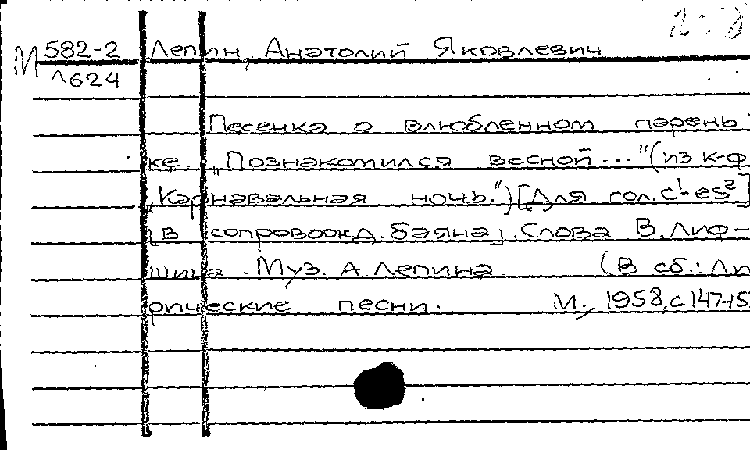 М 582-2 Лепин, Анатолий Яковлевич
Л624
Песенка о влюбленном парень-
ке. „Познакомился весной..."(из к-ф
„Карнавальная ночь.") [Для гол. c¹-es²]
[в сопровожд. баяна]. Слова В. Лиф-
шица. Муз. А. Лепина. (В сб.: Ли
рические песни. М., 1958, с 147-15